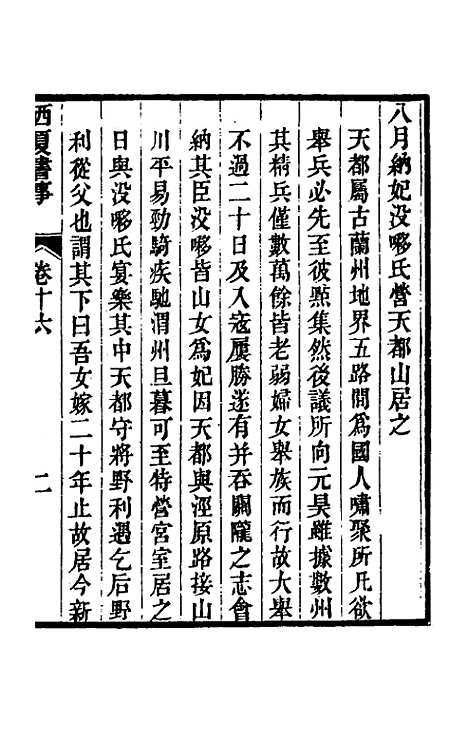 八月納妃没㖿氏營天都山居之
天都屬古蘭州地界五路間爲國人嘯聚所凡欲
舉兵必先至彼㸃集然後議所向元昊雖據數州
其精兵僅數萬餘皆老弱婦女舉族而行故大舉
不過二十日及入寇屢勝遂有并吞關隴之志會
納其臣没㖿皆山女爲妃因天都與涇原路接山
川平易勁騎疾馳渭州旦暮可至特營宮室居之
日與没㖿氏宴樂其中天都守將野利遇乞后野
利從父也謂其下曰吾女嫁二十年止故居今新
西夏書事
卷十六
二